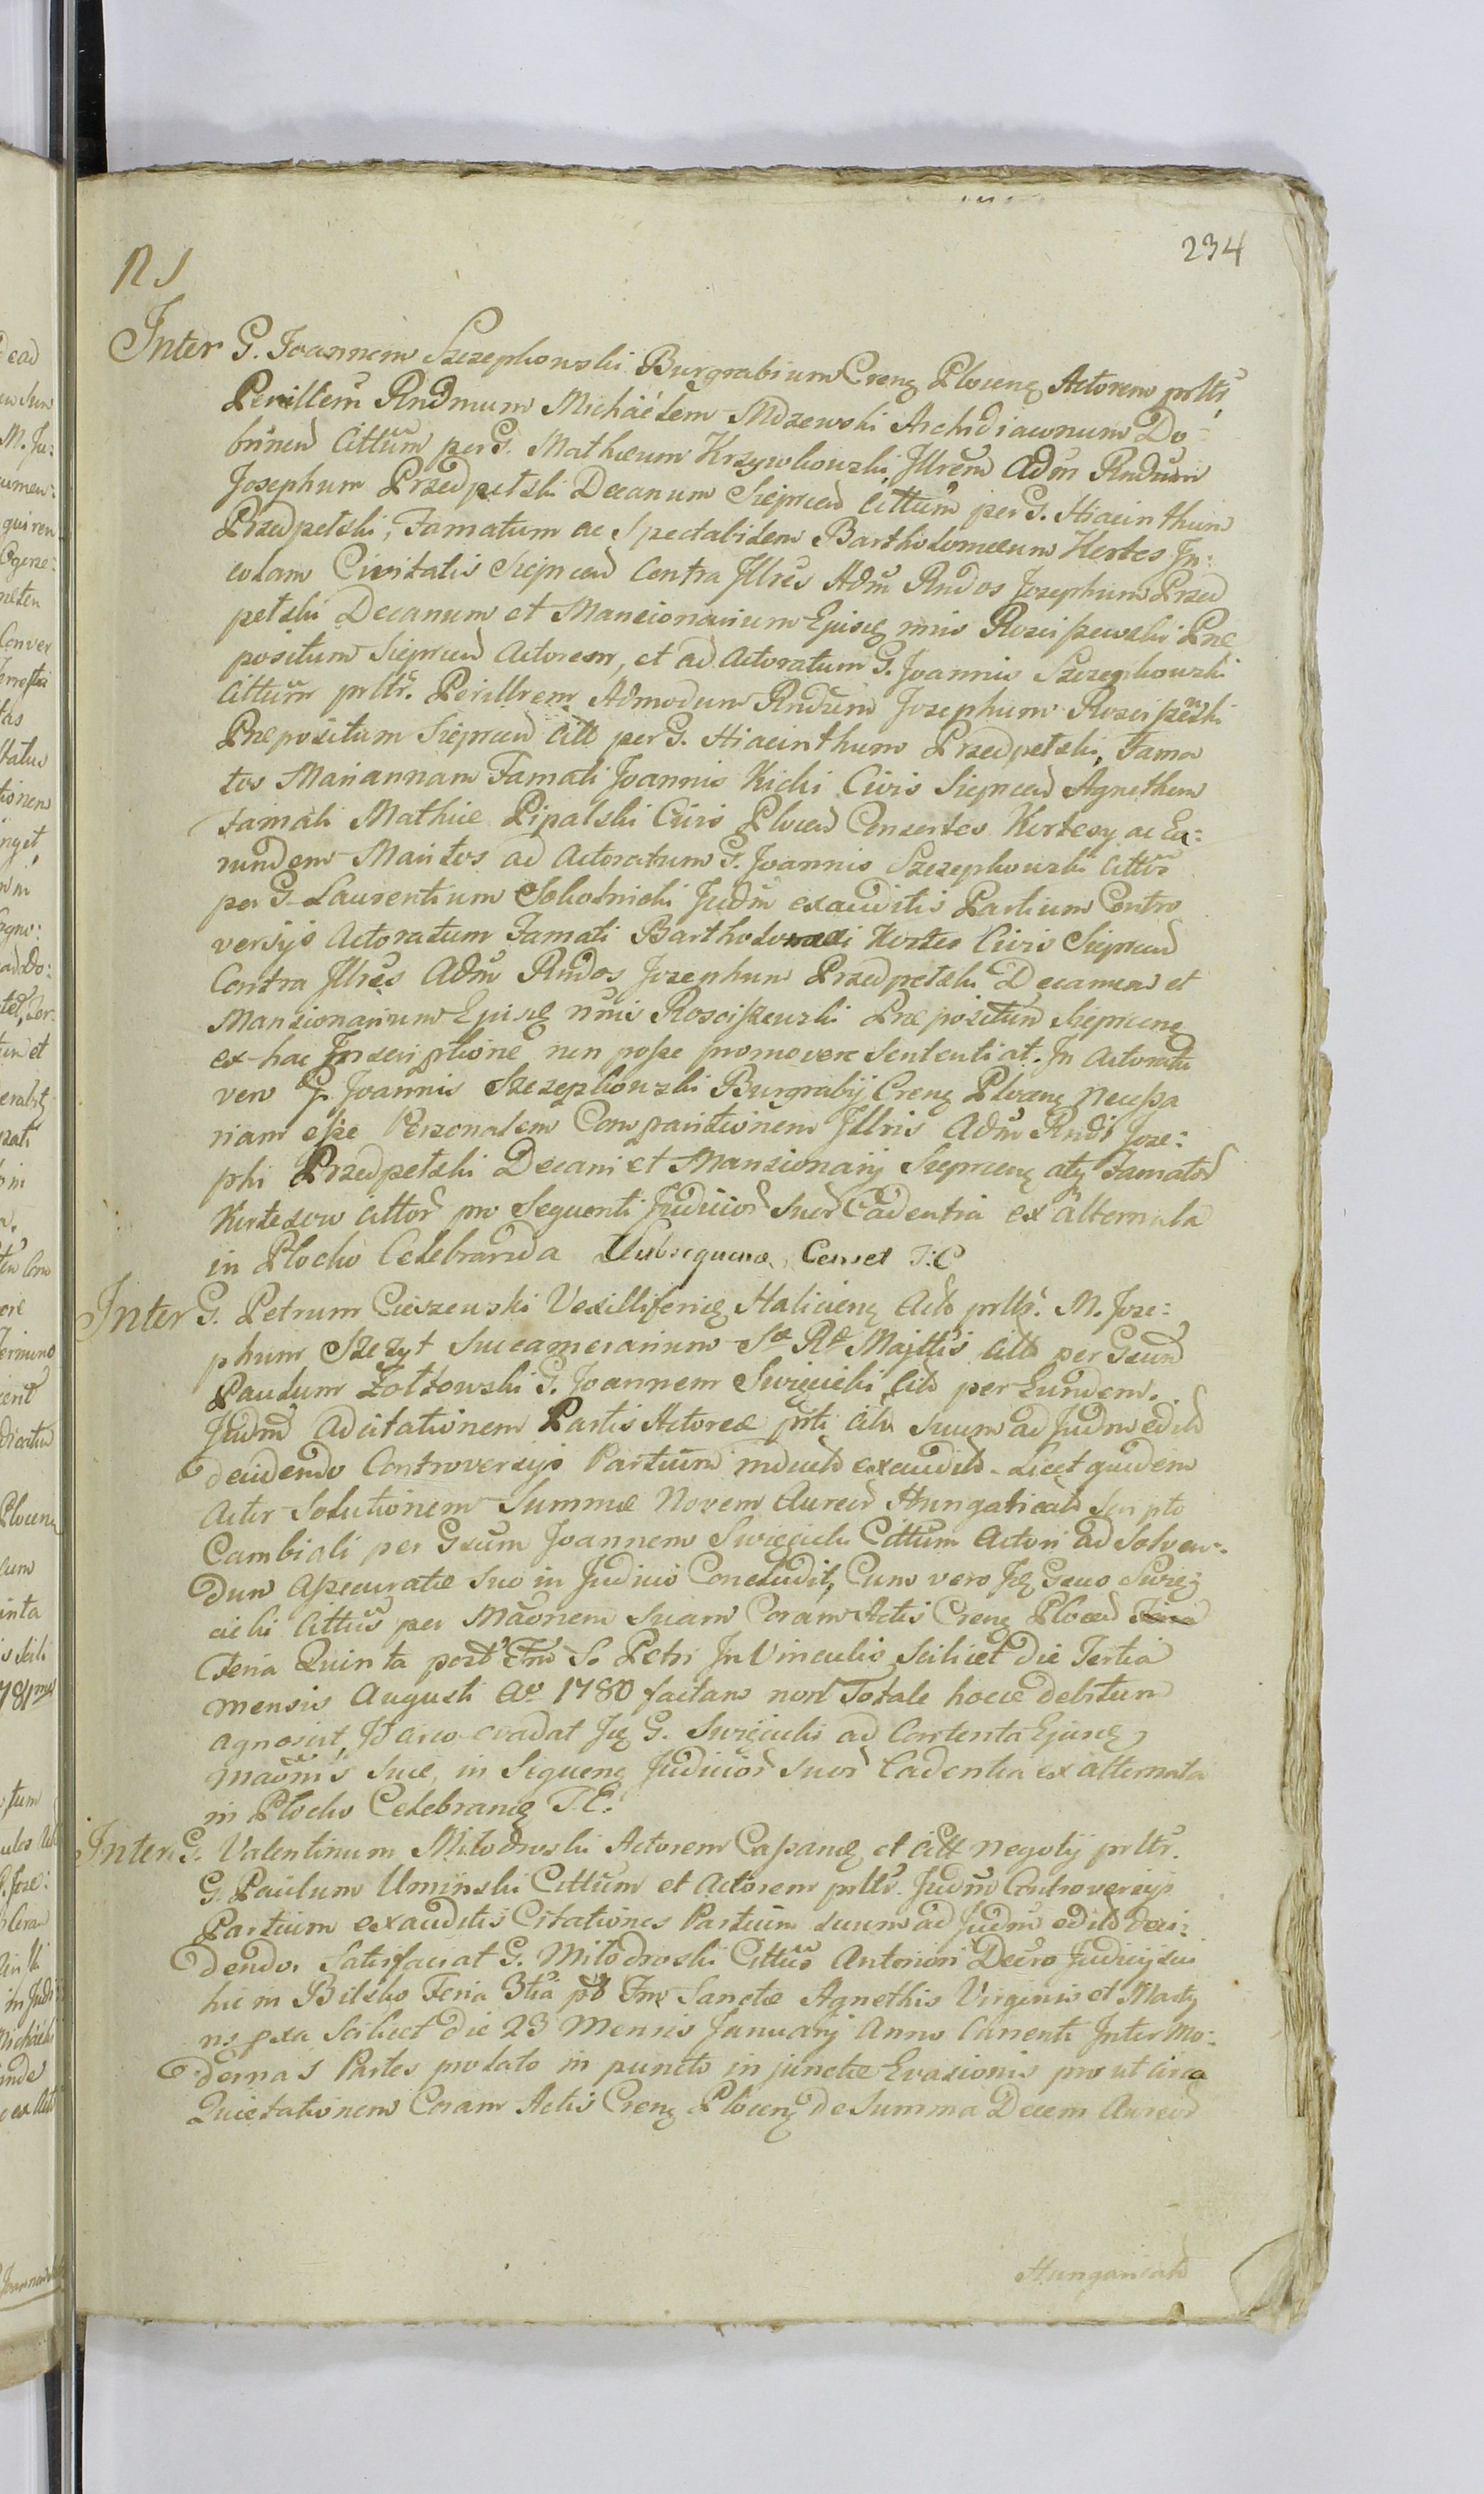 234
NS
Inter G. Joannem Szczepkowski Burgrabium Crens Plocens Actorem prltr,
Perillem Rndmum Michaëlem Mdzewski Archidiaconum Do=
brinen Cittum per G. Matheum Krzywkowski, Jllrem Adm Rndum
Josephum Przedpełski Decanum Sieprcen Cittum per G. Hiacinthum
Przedpełski, Famatum ac Spectabilem Bartholomeum Kertes Jn=
colam Civitatis Sieprcen Contra Jllres Adm Rndos Josephum Przed
pełski Decanum et Mancionarium Ejusq nnis Rosciszewski Præ
positum Sieprcen Actorem, et ad Actoratum G. Joannis Szczepkowski
Cittum prltr. Perillrem Admodum Rndum Josephum Rosciszewski
Præpositum Sieprcen Citt per G. Hiacinthum Przedpełski, Fama
tos Mariannam Famati Joannis Kicki Civis Sieprcen Agnethem
Famati Mathiæ Pipalski Civis Plocen Consortes Kertesy ac Ea=
rundem Maritos ad Actoratum G. Joannis Szczepkowski Cittos
per G. Laurentium Sokolnicki Judm exauditis Partium Contro
versijs Actoratum Famati Bartholomæi Kertes Civis Sieprcen
Contra Jllres Adm Rndos Josephum Przedpełski Decanum et
Mansionarium Ejusq nnis Rosciszewski Præpositum Sieprcens
ex hac Jnscriptione non posse promovere Sententiat. Jn Actoratu
vero G. Joannis Szczepkowski Burgrabij Crens Plocens Necessa
riam esse Personalem Comparitionem Jllris Adm Rndi Jose=
phi Przedpełski Decani et Mansionarij Sieprcens atq Famator
Kertesow Cittor pro Sequenti Judicior Suor Cadentia ex alternata
in Płocko Celebranda Subsequen. Censet T:C
Inter G. Petrum Cieszewski Vexilliferid Haliciens Acto prltr. M. Jose=
phum Szczyt Succamerarium Sæ Ræ Majttis Citt per Gsum
Paulum Zołtowski G. Joannem Swięcicki Citt per Eundem.
Judm ad citationem Partis Actoreæ prti Citu suum ad Judm edito
decidendo Controversijs Partium inducto exauditis. Licet quidem
Actor Solutionem Summæ Novem Aureor Hungaricalo Scripto
Cambiali per Gsum Joannem Swięcicki Cittum Actori ad Solven=
dum Assecuratæ Suo in Judicio Concludit, Cum vero Jdq Gsus Swię
cicki Cittus per Maonem Suam Coram Actis Crens Plocen
Feria Quinta post Fm S. Petri Jn Vinculis Scilicet die Tertia
mensis Augusti Ao 1780 factam non Totale hocce debitum
agnoscit, Jdcirco evadat Jdq G. Swięcicki ad Contenta Ejusq
Maonis Suæ, in Sequens Judicior Suor Cadentia ex alternata
in Płocko Celebrans T.E.
Inter G. Valentinum Miłodroski Actorem Cassanq et Citt negotij prltr.
G. Paulum Uminski Cittum et Actorem prltr. Judm Controversijs
Partium exauditis Citationes Partium suum ad Judm edito deci=
dendo. Satisfaciat G. Miłodroski Cittus Anteriori Decro Judicij sui
hic in Bielsko Feria 3tia pt Fm Sanctæ Agnethis Virginis et Marty
ris pxa Scilicet die 23 Mensis January Anno Currenti Jnter Mo=
dernas Partes prolato in puncto injunctæ Evasionis pro ut circa
Quietationem Coram Actis Crens Plocens de Summa Decem Aureor
Hungaricalo